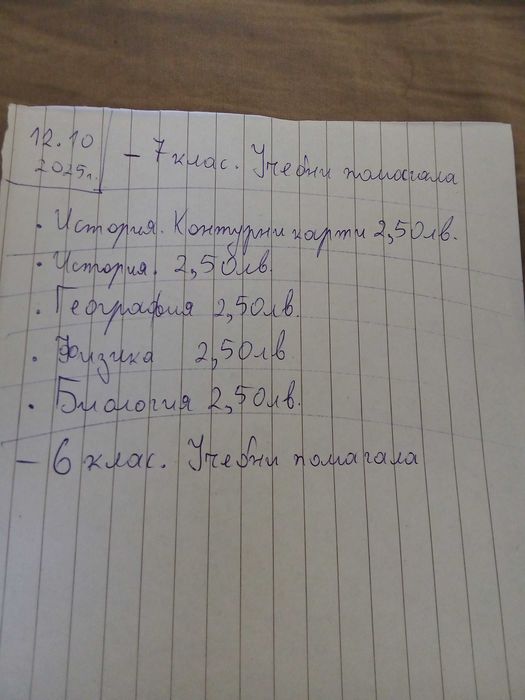 12.10
2025г.
– 7 клас. Учебни помагала
• История. Контурни карти 2,50лв.
• История. 2,50лв.
• География 2,50лв.
• Физика 2,50лв
• Биология 2,50лв.
– 6 клас. Учебни помагала